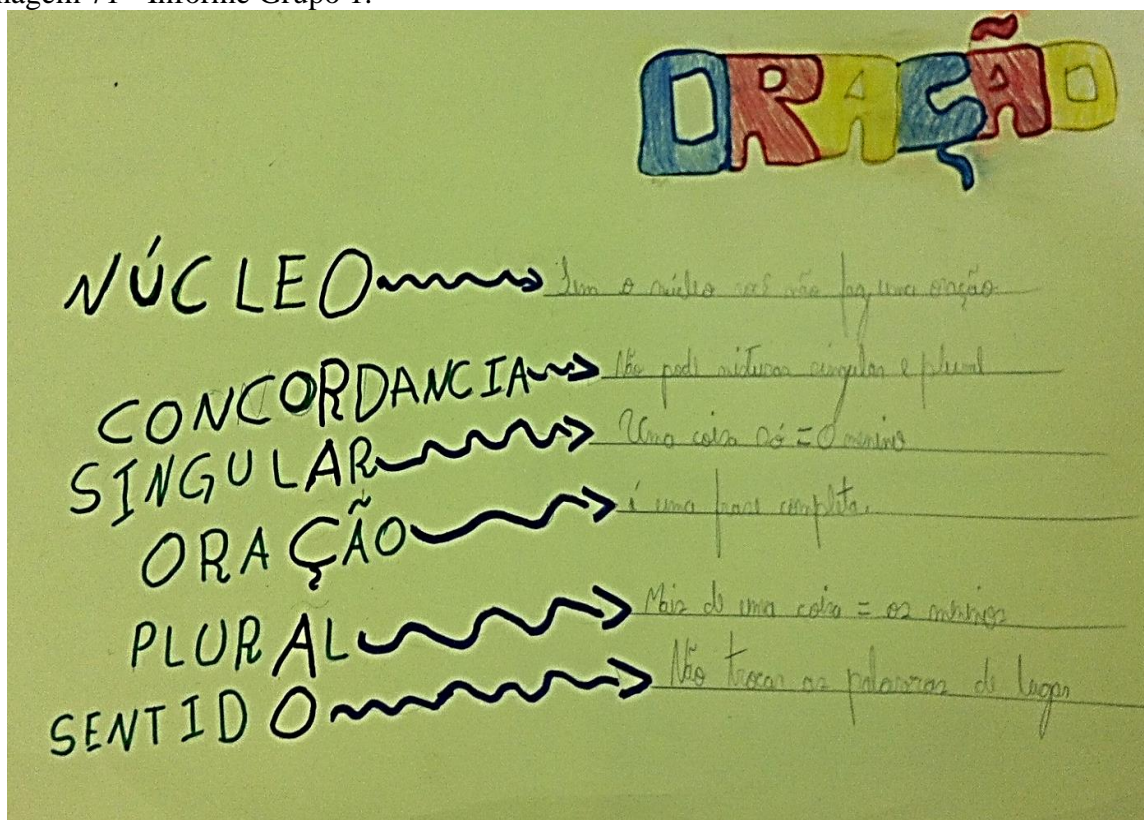 Imagem 71 - Informe Grupo 1.
ORAÇÃO
NÚCLEO Sem o núcleo você não faz uma oração
CONCORDANCIA Não pode misturar singular e plural
SINGULAR Uma coisa só = O menino
ORAÇÃO é uma frase completa.
PLURAL Mais de uma coisa = os meninos
SENTIDO Não trocar as palavras de lugar